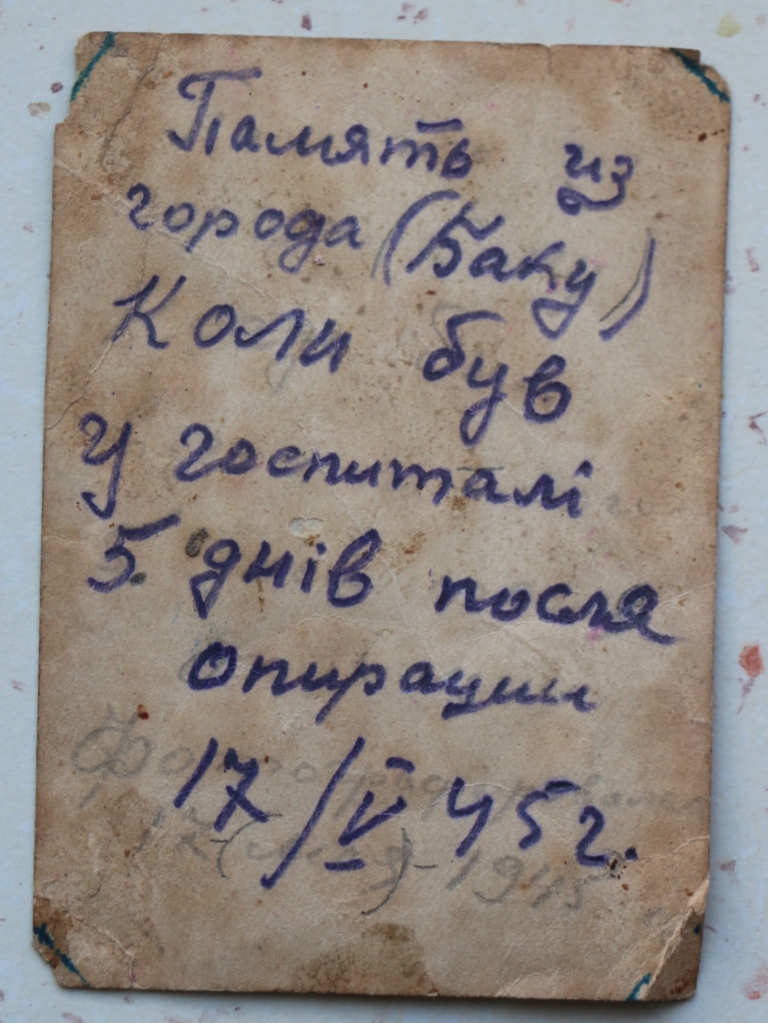 Память из
города (Баку)
Коли був
у госпиталі
5 днів посля
опирации
17/V 45 г.
17-(мая)-1945